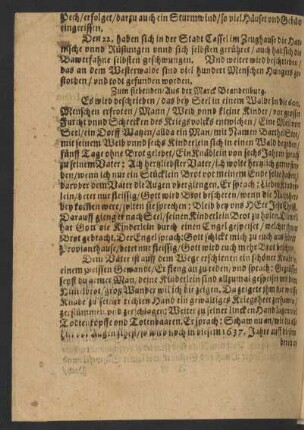 Pech / erfolget / darzu auch ein Sturmwind / so viel Häuser vnd
eingerissen.
Den 22. haben sich in der Stadt Cassel im Zeughause die Har-
nische vnnd Rüstungen vnnd sich selbsten gerühret / auch hat sich die
selbsten geschwungen. Vnd weiter wird beschrieben /
das an dem Westerwalde sind viel hundert Menschen Hungers ge-
storben / vnd todt gefunden worden.
Zum siebenden / Aus der Marck Brandenburg.
Es wird beschrieben / das bey Seel in einem Walde in die
Menschen erfroren / Mann / Weib vnnd kleine Kinder / vor grosser
Furcht vnnd Schrecken des Kriegsvolcks entwichen / Eine Meil von
Seel / ein Dorff / alda ein Man / mit Namen
mit seinem Weib vnnd sechs Kinderlein sich in einen Wald begeben /
fünff Tage ohne Brot gelebet / Ein Knäblein von sechs Jahren sprach
zu seinem Vater: Ach hertzliebster Vater / ich wolte hertzlich gern
den / wenn ich nur ein Stücklein Brot vor meinem Ende solte haben /
darob dem Vater die Augen vberglengen. Er sprach: Lieben Kinder-
lein betet nur fleissig / Gott wird Brot bescheren / wenn die
bey kosten were / sie sprechen: Bleib bey vns HErr Jesu
Darauff gieng er nach Seel / seinen Kinderlein Brot zu holen
hat Gott die Kinderlein durch einen Engel gespeiset / welcher
Brot gebracht. Der Engel sprach: Gott schickt mich zu euch aus
Proviant hause / betet nur fleissig / Gott wird euch mehr Brot
Dem Vater ist auff dem Wege erschienen ein schöner
einem weissen Gewandt / Er fieng an zu reden / vnd sprach:
du armer Man / deine Kinderlein sind allzumal gespeiset
Himelbrot / gros Wunder wil ich dir zeigen. Da zeigete
Knabe zu seiner rechten Hand ein gewaltiges Kriegsheer
zerhawen vnd geschlagen: Weiter zu seiner lincken Hand
Todtenköpffe vnd Todtenbaaren. Er sprach: Schaw nu an /
Augen siehest / so wird noch in diesem 1637. Jahr